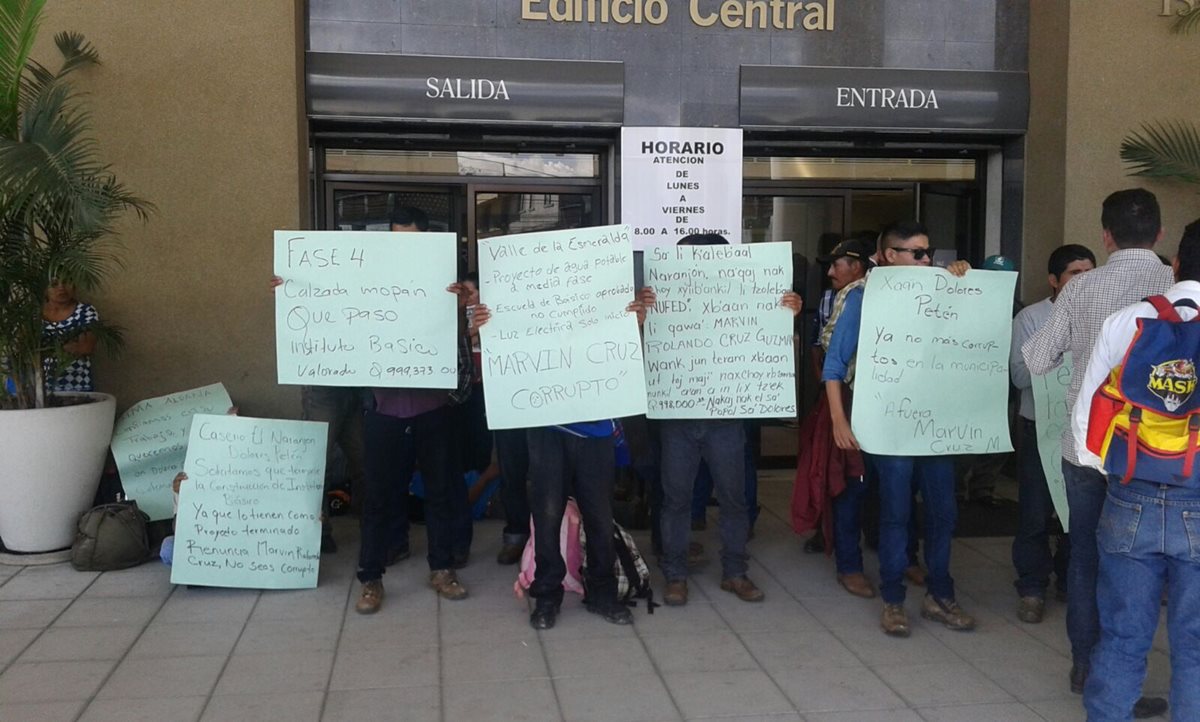 Edificio Central
SALIDA
ENTRADA
HORARIO
ATENCION
DE
LUNES
A
VIERNES
DE
8.00 A 16.00 horas.
FASE 4
Calzada mopán
Que paso
Instituto Basico
Valorado Q 999,373.00
"Valle de la Esmeralda"
- Proyecto de agua potable
a media fase
- Escuela de Básico aprobado
no cumplido
- Luz Electrica solo inicio
MARVIN CRUZ
CORRUPTO"
Sa' li Kalebaal
Naranjón, na'qaj nak
choy xyiibankil li tzolebaal
NUFED", xb'aan nak
li qawa': MARVIN
ROLANDO CRUZ GUZMAN
Wank jun teram xb'aan
ut toj maji' naxchoy
a'an a in lix tzek
Q 998,000.00 Nakaj nak el sa'
Popol Sa' Dolores
Xaán Dolores
Petén
Ya no más corrup
tos en la municipa
lidad
"Afuera
Marvin
Cruz M
Caserio El Naranjon
Dolores, Petén
Solicitamos que termine
la Construcción de Instituto
Básico
Ya que lo tienen como
Proyecto terminado
Renuncia Marvin Rolando
Cruz, No seas corrupto
Trabajo, y
Queremos
MASH